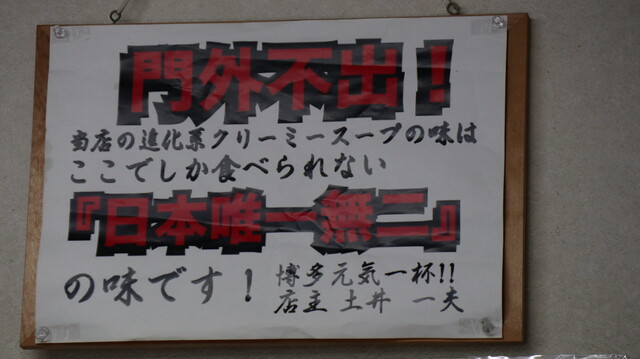 門外不出！
当店の進化系クリーミースープの味は
ここでしか食べられない
『日本唯一無二』
の味です！
博多元気一杯!!
店主 土井 一夫